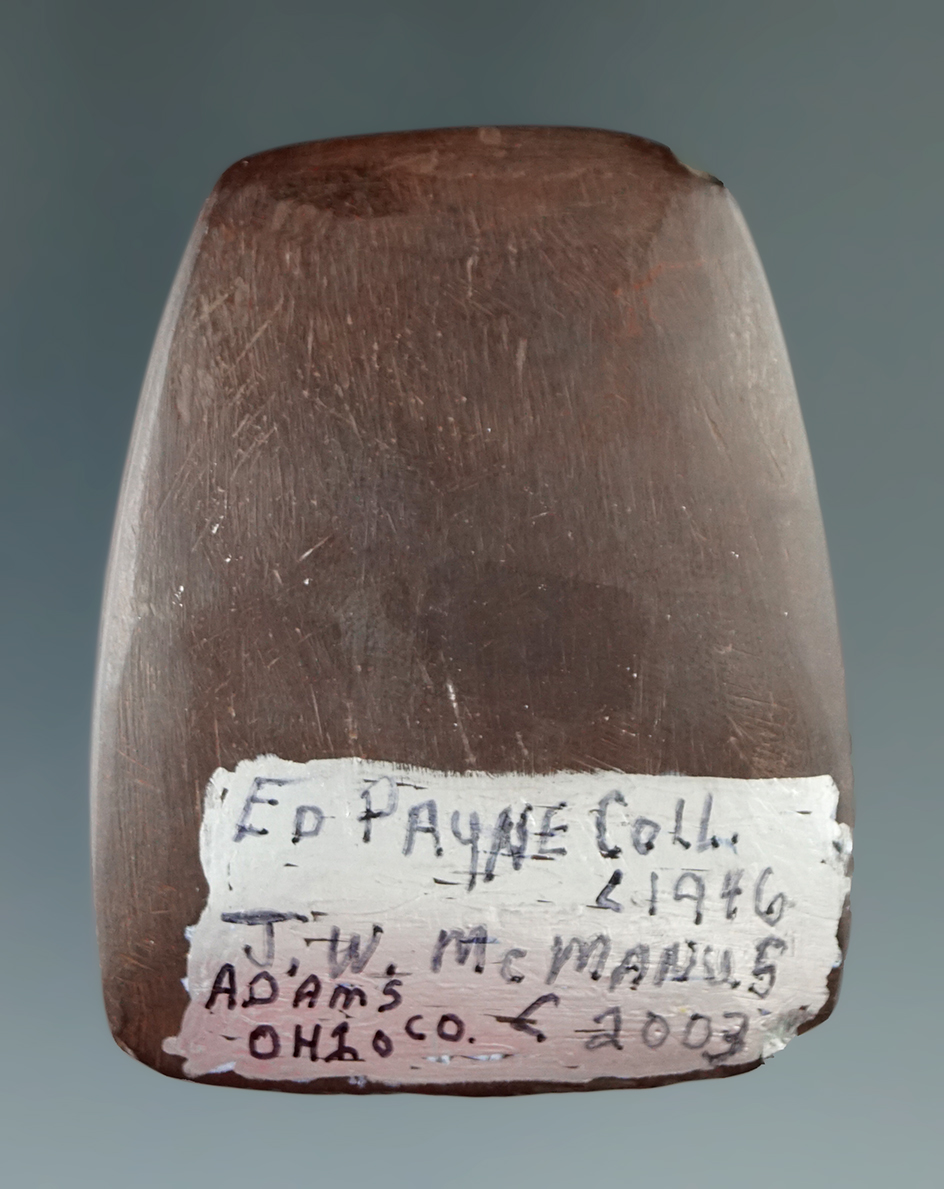 ED PAYNE COLL.
< 1946
J. W. McMANUS
ADAMS
OHIO CO. < 2003